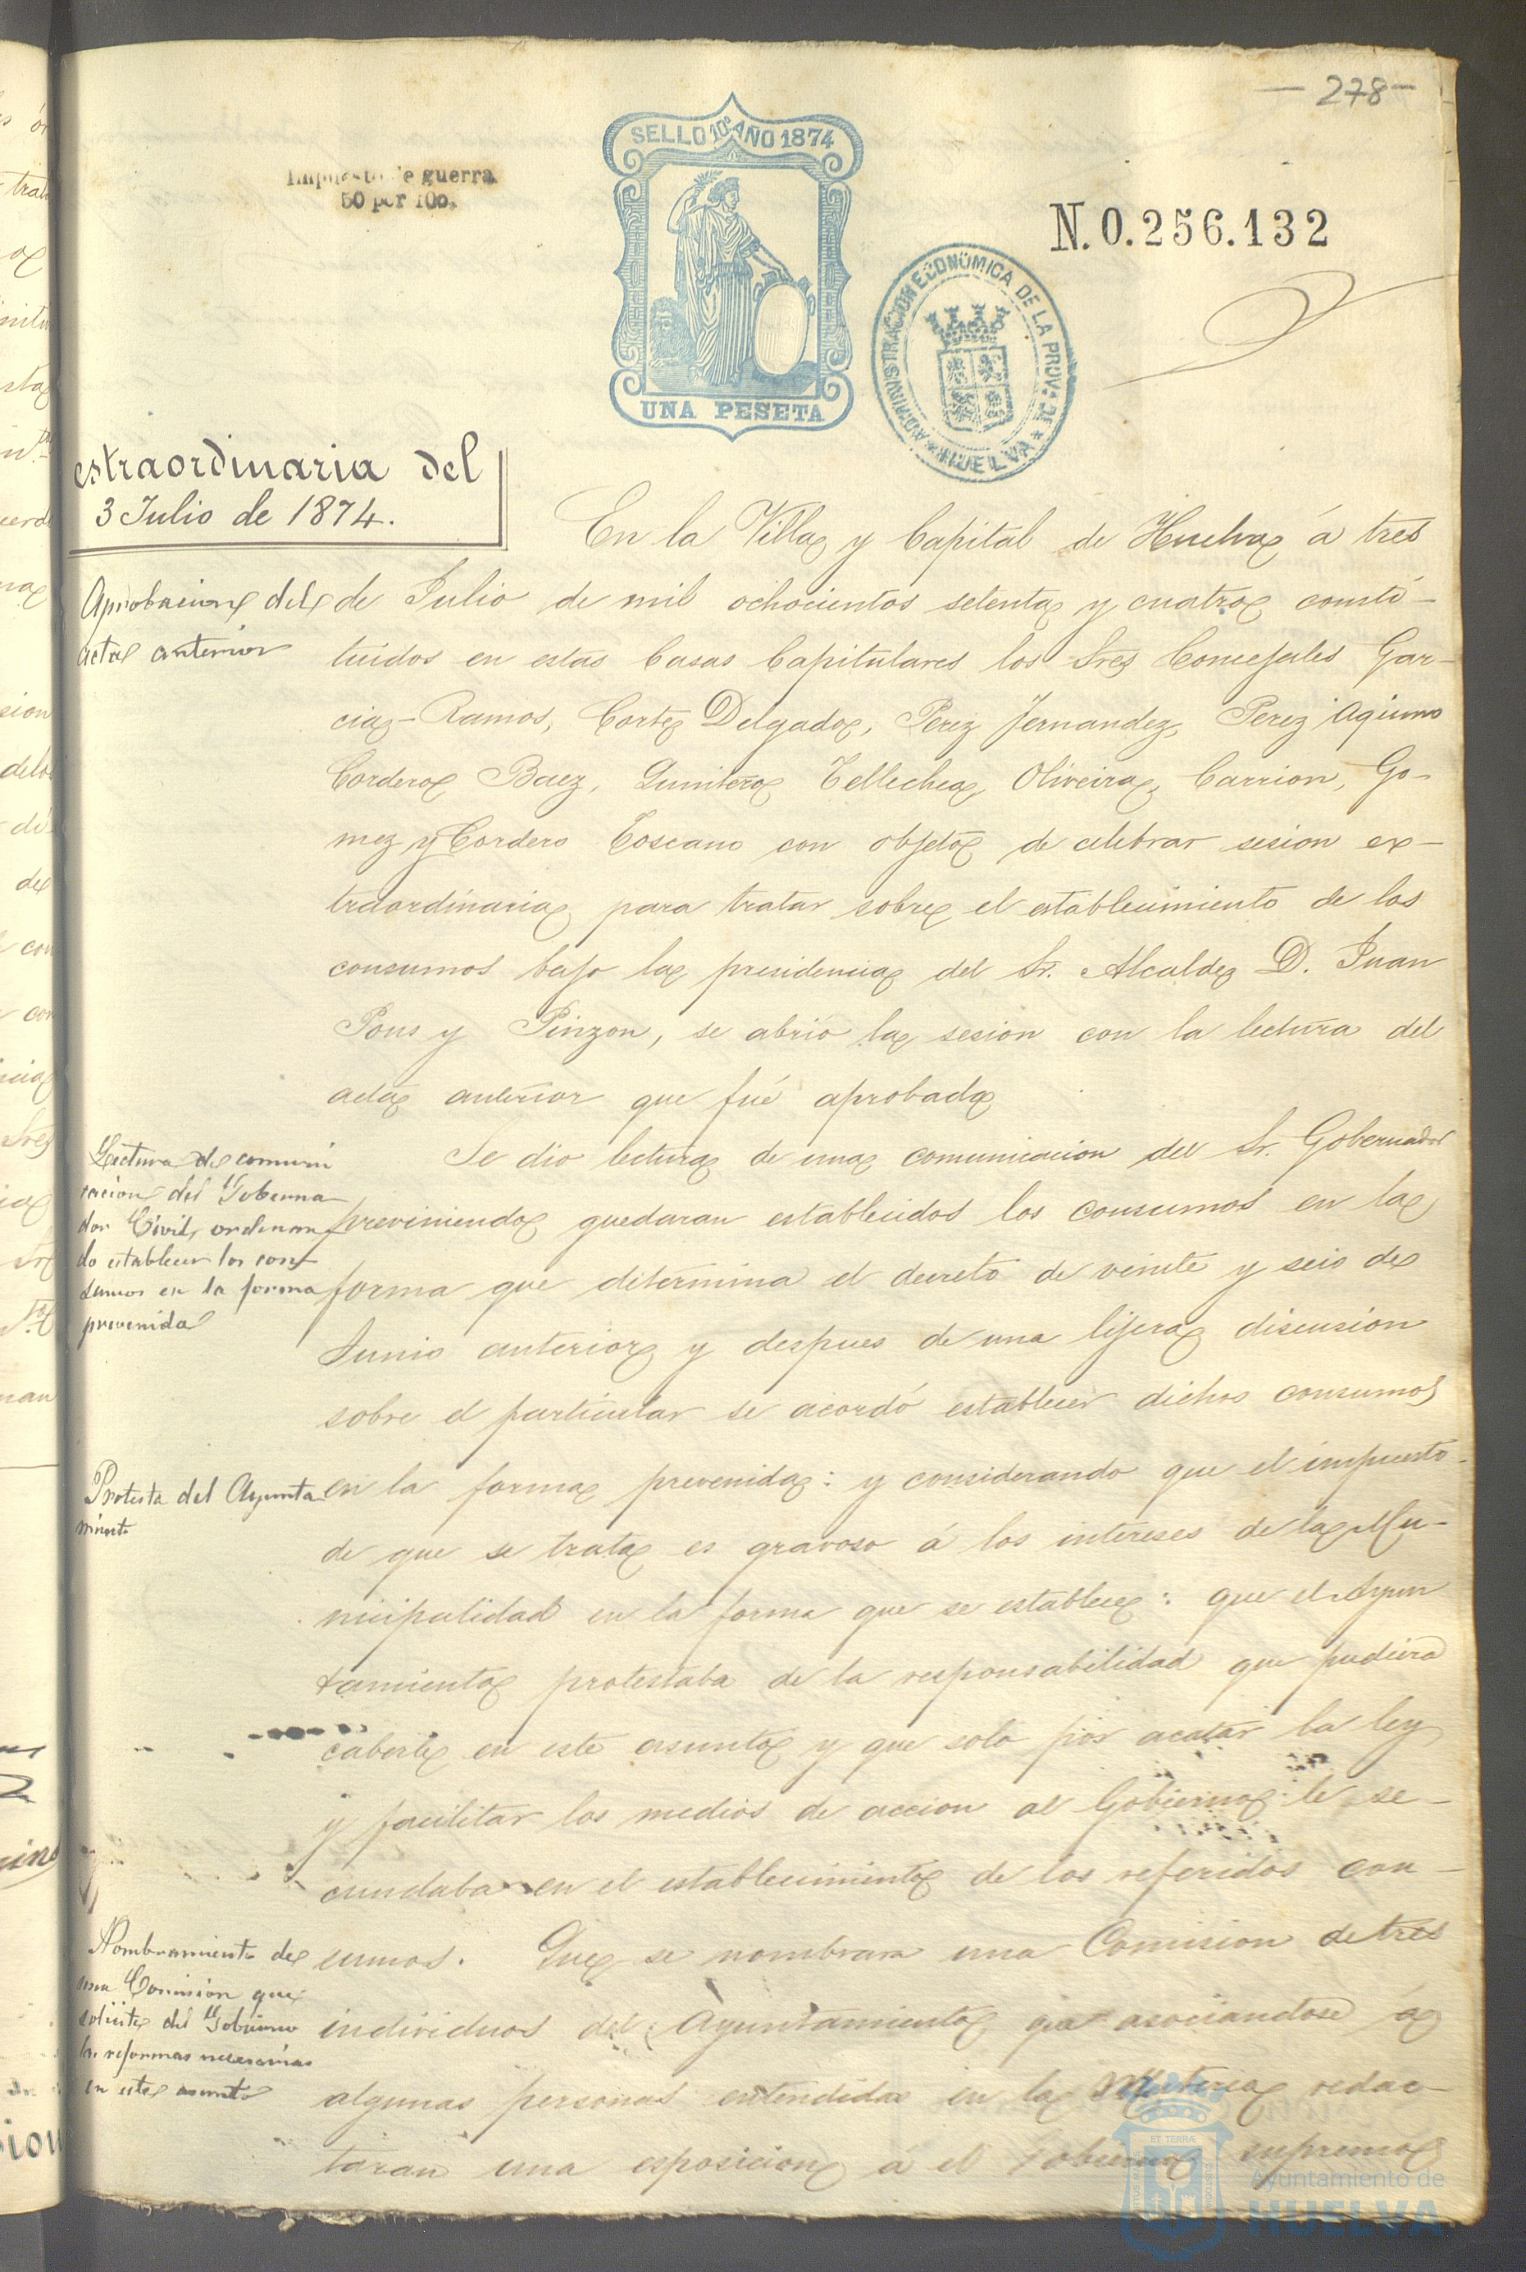 — 278 —
SELLO 10º AÑO 1874
Impuesto de guerra
50 por 100.
N. 0.256.132
UNA PESETA
ADMINISTRACION ECONÓMICA DE LA PROVª DE HUELVA
estraordinaria del
3 Julio de 1874.
En la Villa y Capital de Huelva á tres
Aprobacion del
acta anterior
de Julio de mil ochocientos setenta y cuatro consti-
tuidos en estas Casas Capitulares los Sres Concejales Gar-
cia-Ramos, Cortes Delgado, Perez Fernandez, Perez Aquino
Cordero Baez, Quintero Tellechea, Oliveira, Carrion, Go-
mez y Cordero Toscano con objeto de celebrar sesion ex-
traordinaria para tratar sobre el establecimiento de los
consumos bajo la presidencia del Sr. Alcalde D. Juan
Pons y Pinzon, se abrió la sesion con la lectura del
acta anterior que fué aprobada
Lectura de comuni
cacion del Goberna
dor Civil, ordenan
do establecer los con
sumos en la forma
prevenida
Se dio lectura de una comunicacion del Sr. Gobernador
previniendo quedaran establecidos los consumos en la
forma que determina el decreto de veinte y seis de
Junio anterior y despues de una lijera discusion
sobre el particular se acordó establecer dichos consumos
Protesta del Ayunta
miento
en la forma prevenida: y considerando que el impuesto
de que se trata es gravoso á los intereses de la Mu-
nicipalidad en la forma que se establece: que el Ayun
tamiento protestaba de la responsabilidad que pudiera
caberle en este asunto y que solo por acatar la ley
y facilitar los medios de accion al Gobierno le se-
cundaba en el establecimiento de los referidos con-
Nombramiento de
una Comisión que
solicite del Gobierno
las reformas necesarias
en este asunto
sumos. Que se nombrara una Comision de tres
individuos del Ayuntamiento que asociandose á
algunas personas entendidas en la Materia redac-
taran una esposicion á el Gobierno supremo
ET TERRÆ
Ayuntamiento de
HUELVA